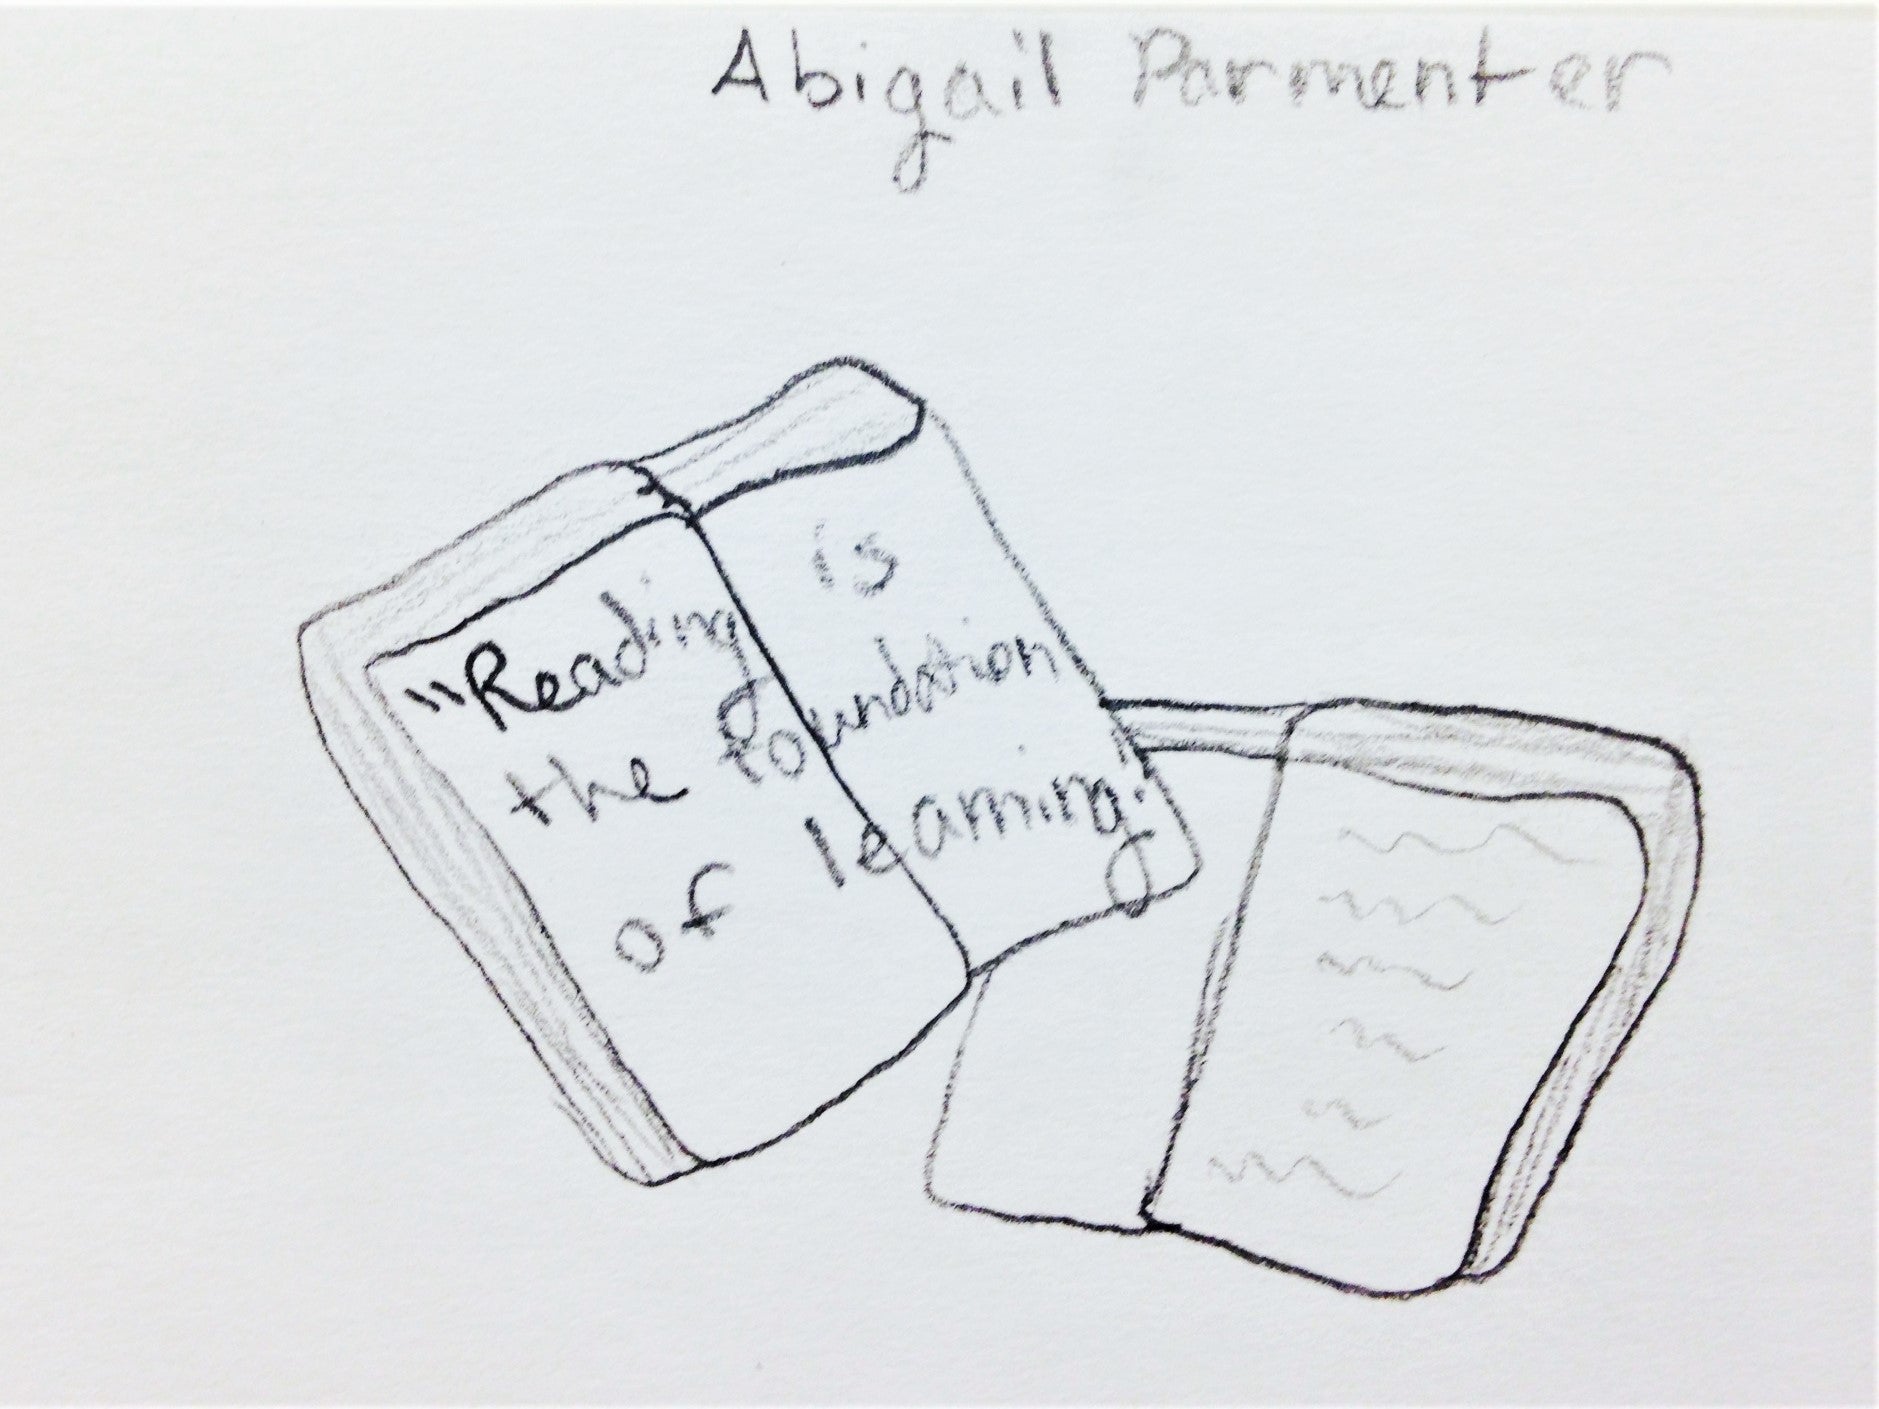 Abigail Parmenter
"Reading is
the foundation
of learning.